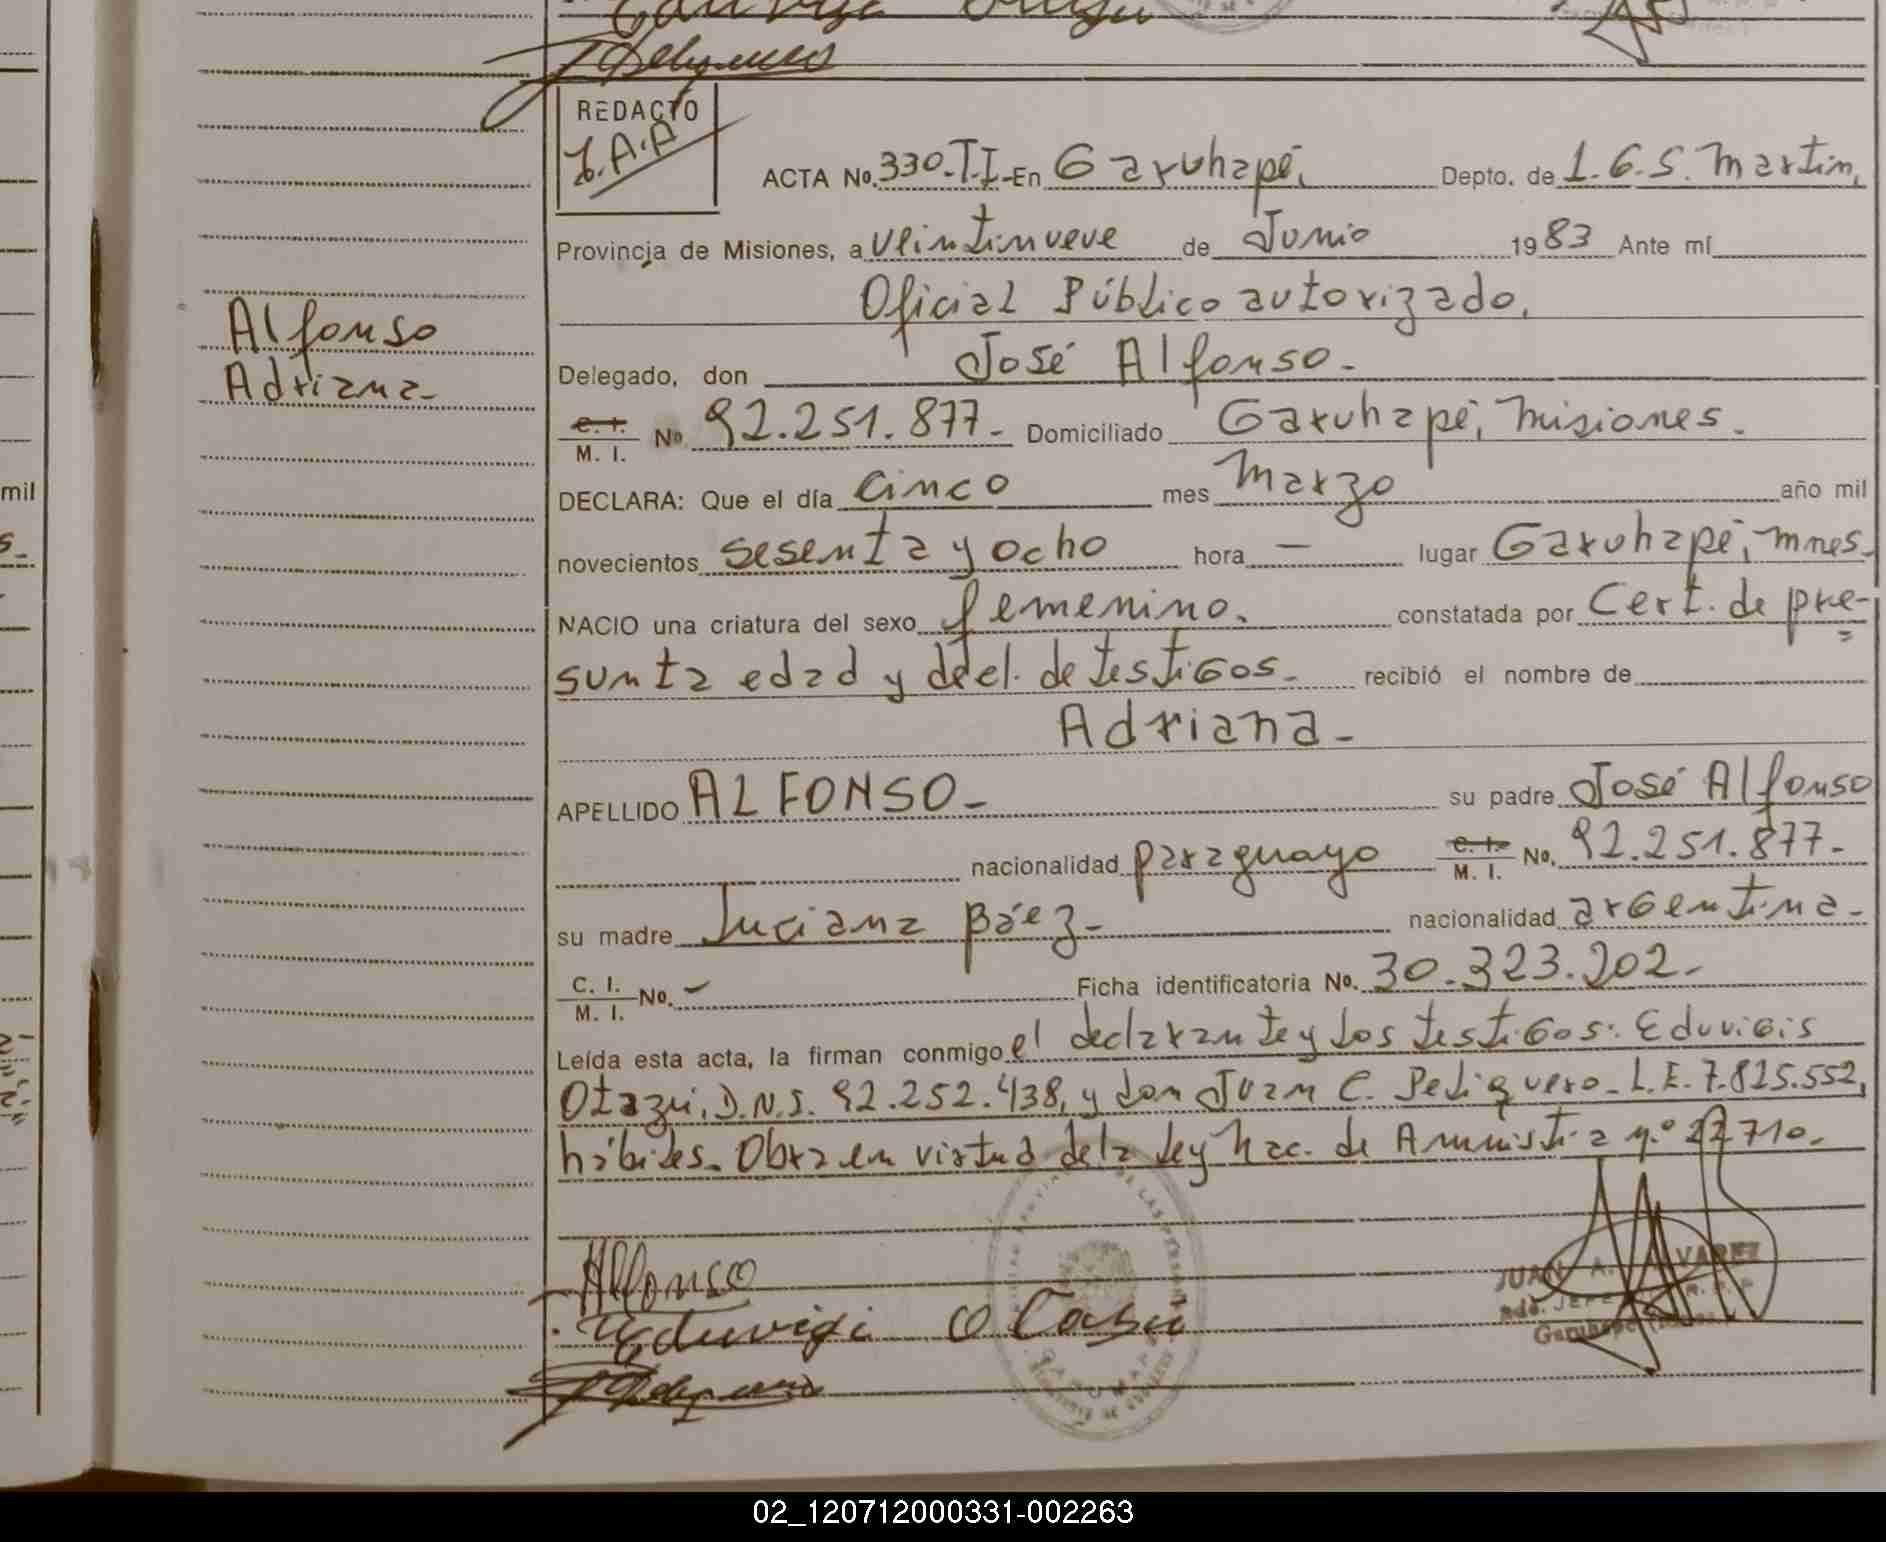 REDACTO
J.A.A
ACTA No. 330-T.I-En Garuhapé, Depto. de L.G.S. Martín,
Provincia de Misiones, a veintinueve de Junio 1983 Ante mí
Oficial Público autorizado,
Alfonso
Adriana-
Delegado, don José Alfonso.-
C. I. M. I. No. 92.251.877.- Domiciliado Garuhapé, Misiones.
DECLARA: Que el día cinco mes Marzo año mil
novecientos sesenta y ocho hora — lugar Garuhapé, Mnes.
NACIO una criatura del sexo femenino. constatada por Cert. de pre-
sunta edad y decl. de testigos.- recibió el nombre de
Adriana-
APELLIDO ALFONSO- su padre José Alfonso
nacionalidad paraguayo C. I. M. I. No. 92.251.877.-
su madre Luciana Báez- nacionalidad argentina-
C. I. M. I. No. - Ficha identificatoria No. 30.323.202.-
Leída esta acta, la firman conmigo el declarante y los testigos: Eduvigis
Otazú, D.N.I. 92.252.438, y don Juan C. Peliquero- L.E. 7.825.552,
hábiles. Obra en virtud de la Ley Nac. de Amnistía n.º 22710.-
Alfonso
JUAN A. ALVAREZ
Garuhapé
mil
02_120712000331-002263